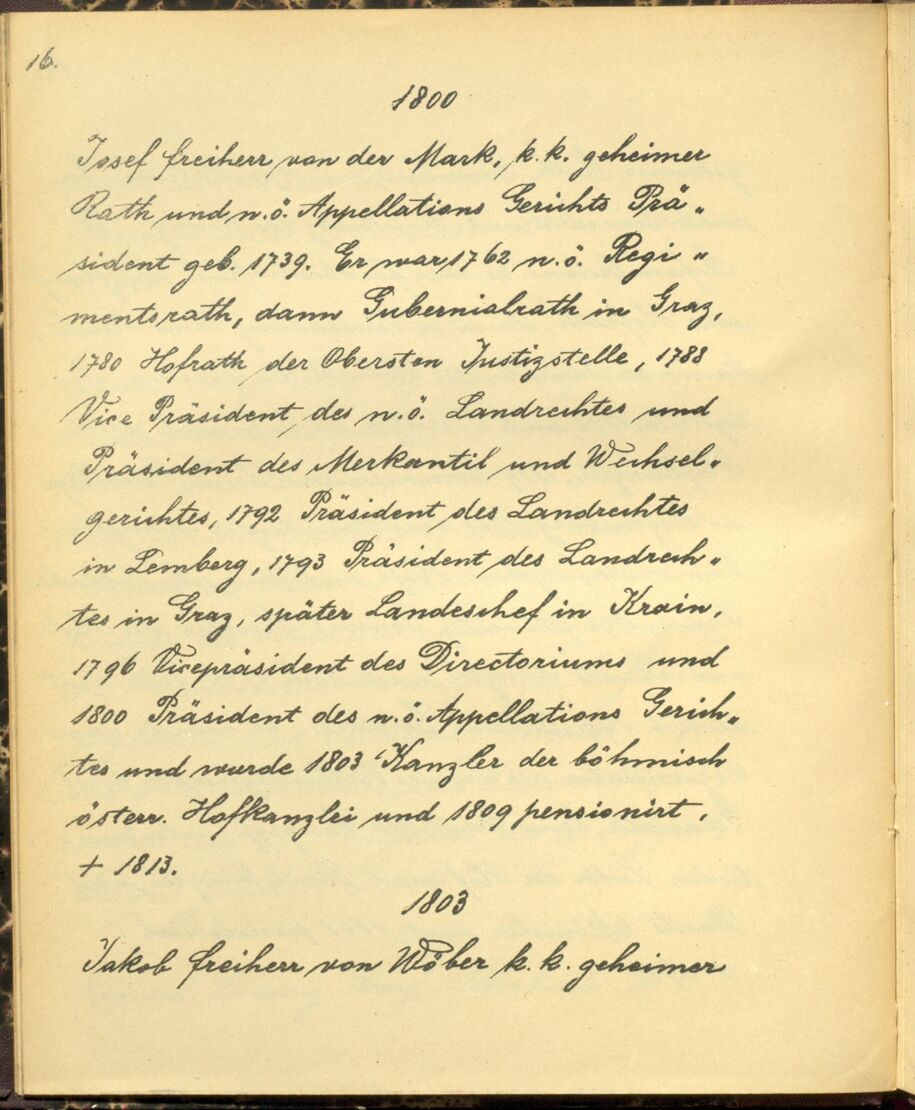 16.
1800
Josef freiherr von der Mark, k. k. geheimer
Rath und n. ö. Appellations Gerichts Prä„
sident geb. 1739. Er war 1762 n. ö. Regi„
mentsrath, dann Gubernialrath in Graz,
1780 Hofrath der Obersten Justizstelle, 1788
Vice Präsident des n. ö. Landrechtes und
Präsident des Merkantil und Wechsel„
gerichtes, 1792 Präsident des Landrechtes
in Lemberg, 1793 Präsident des Landrech„
tes in Graz, später Landeschef in Krain,
1796 Vicepräsident des Directoriums und
1800 Präsident des n. ö. Appellations Gerich„
tes und wurde 1803 Kanzler der böhmisch
österr. Hofkanzlei und 1809 pensionirt,
+ 1813.
1803
Jakob freiherr von Wöber k. k. geheimer